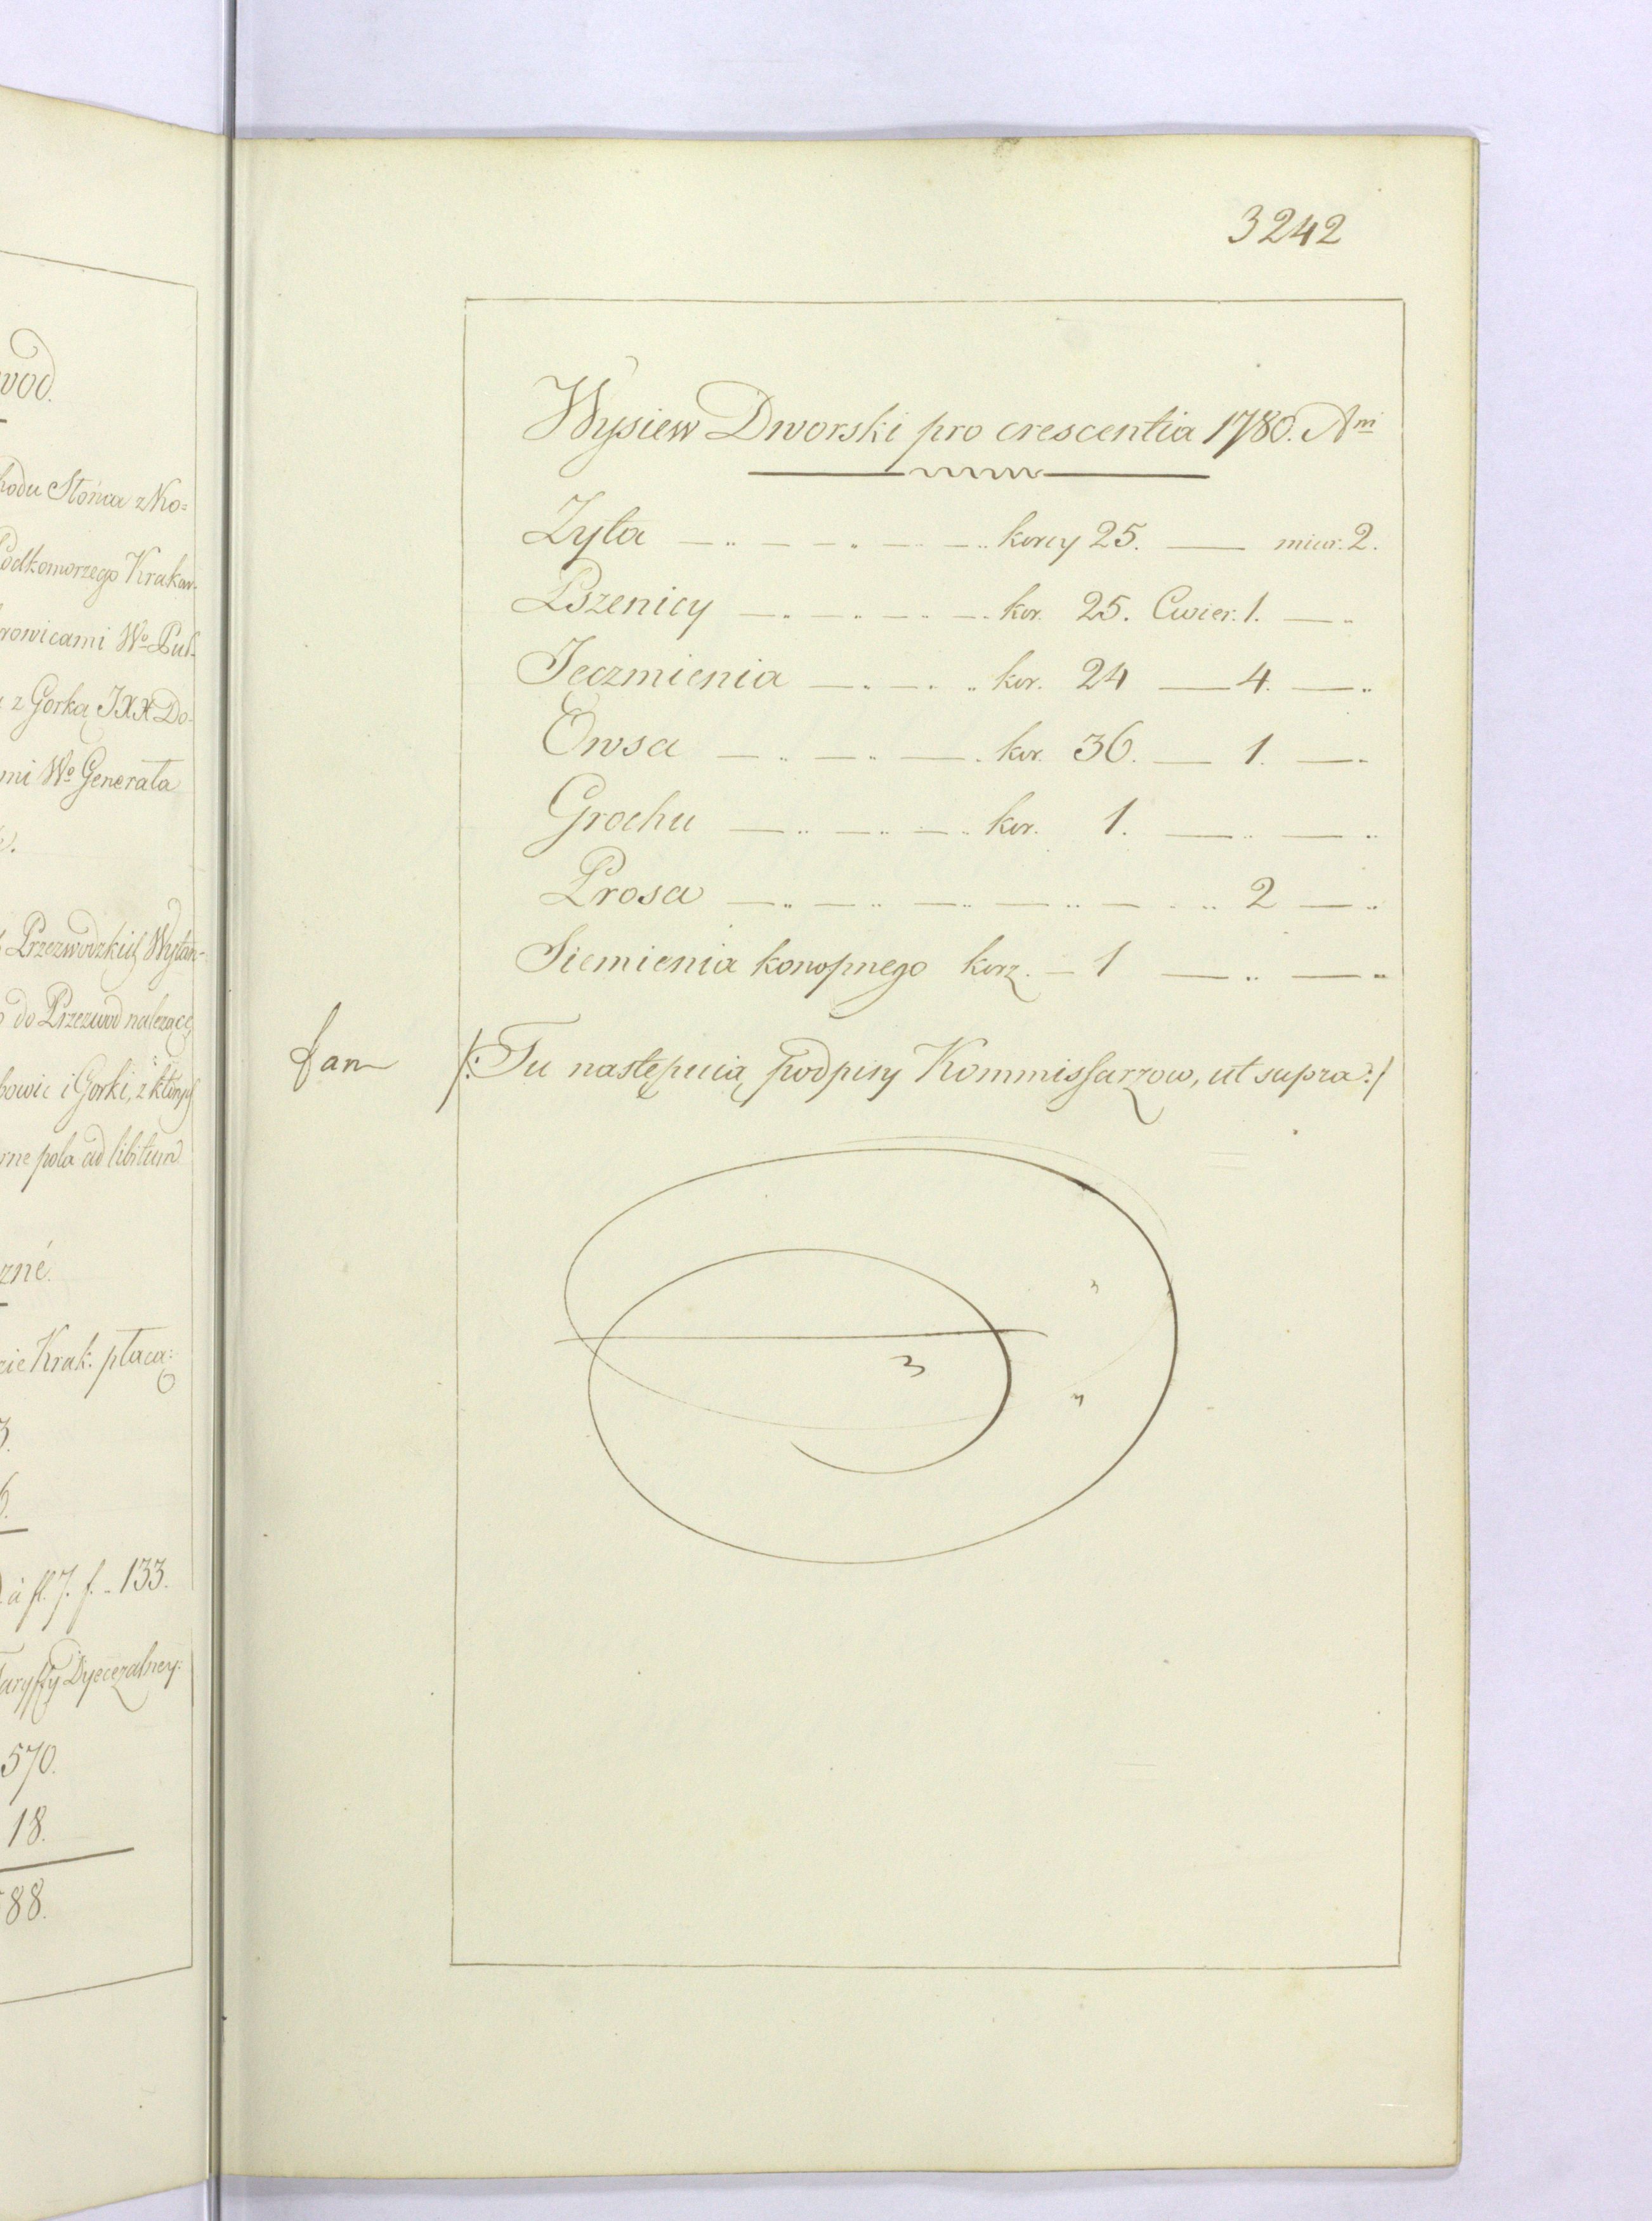 vod.
hodu Słońca z Ko=
Podkomorzego Krakow.
rowicami Wo Pus-
z Gorką JXX Do-
mi Wo Generała
Przezwodzkich Wysłan-
do Przezwod należąc
bowic i Gorki, z których
rne pola ad libitum
zné.
cie Krak. płacą:
3.
6.
à fl. 7. f. .. 133.
Taryffy Dyecezalney:
570.
18.
88.
3242
Wysiew Dworski pro crescentia 1780. Ani
Zyta — .. — — .. — — .. korcy 25. — miar. 2.
Pszenicy — .. — .. — .. — . kor. 25. Cwier. 1. — ..
Jeczmienia — .. — .. kor. 24 — 4. — ..
Owsa — .. — .. — . kor. 36. — 1. — ..
Grochu — .. — .. — . kor. 1. — .. — ..
Prosa — .. — .. — .. — .. — .. 2 — ..
Siemienia konopnego korz. — 1 — .. — ..
fan /: Tu następuią podpisy Kommissarzow, ut supra :/